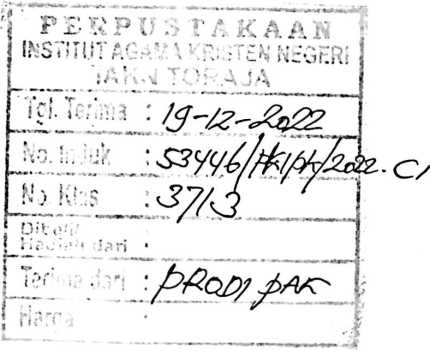 PERPUSTAKAAN
INSTITUT AGAMA KRISTEN NEGERI
IAKN TORAJA
Tgl. Terima : 19-12-2022
No. Induk : 53446/ /pk/2022. C1
No Klas : 371.3
Dibeli
Hadiah dari :
Terima dari : PRODI PAK
Harga :